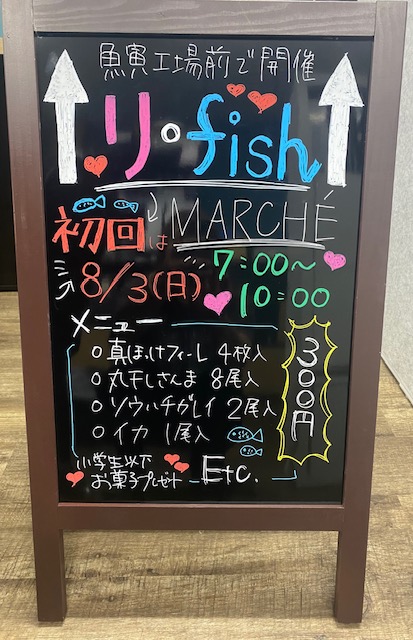 魚寅工場前で開催
リ・fish
初回は MARCHÉ
8/3(日) 7:00〜
10:00
メニュー
○真ほっけフィーレ 4枚入
○丸干しさんま 8尾入
○ソウハチガレイ 2尾入
○イカ 1尾入
300円
小学生以下
お菓子プレゼント Etc.